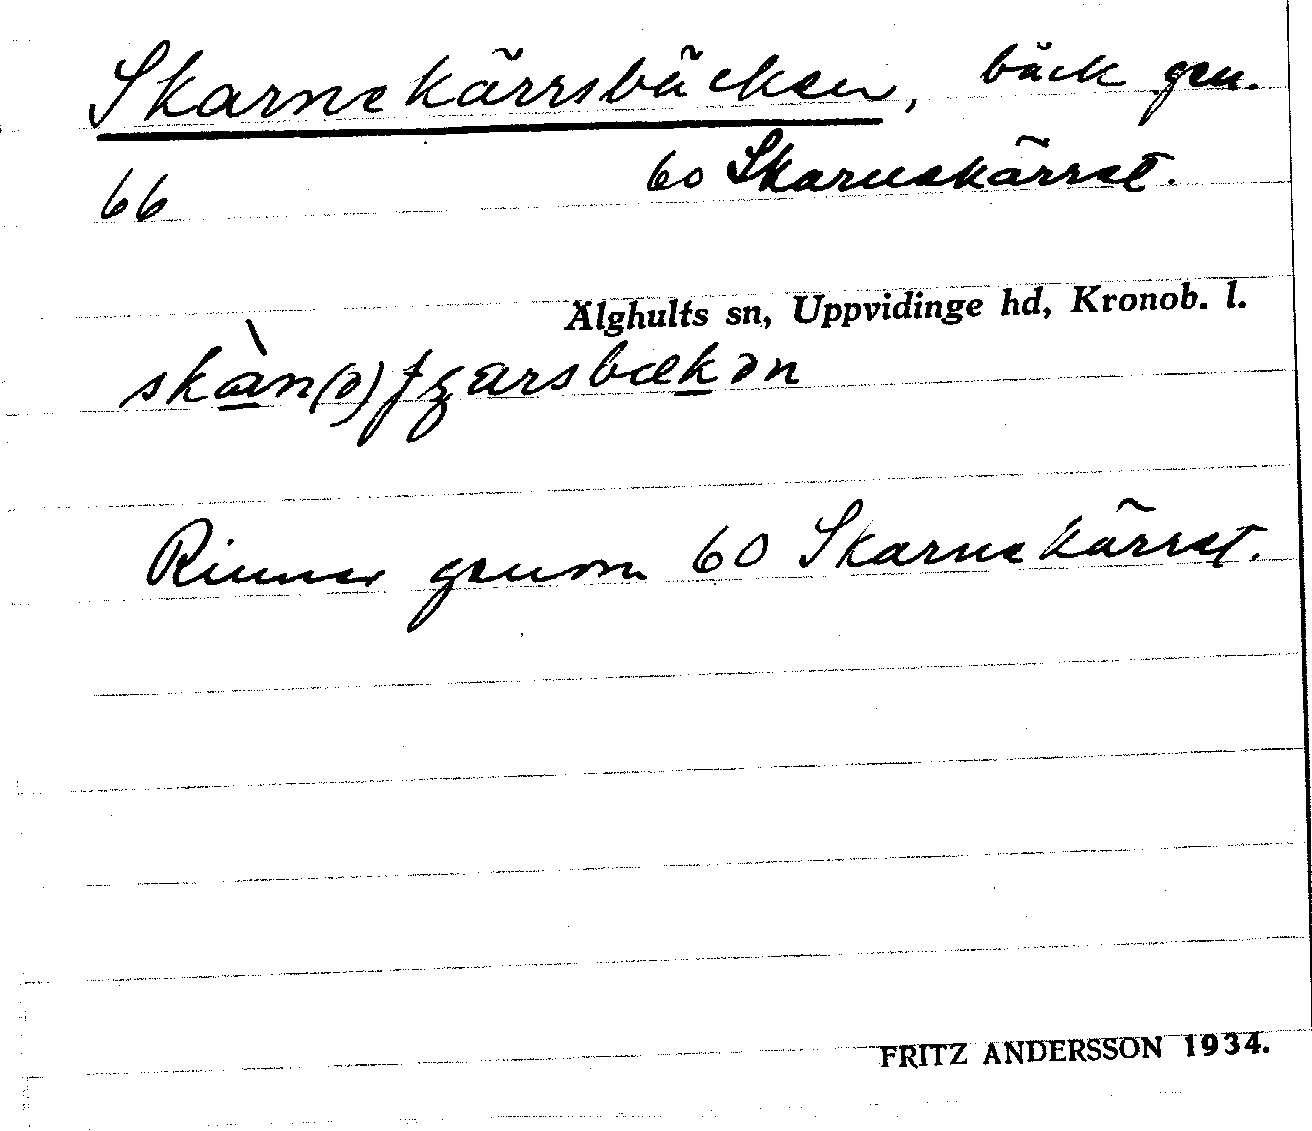 Skarnekärrsbäcken, bäck gen.
66 60 Skarnekärret.
Älghults sn, Uppvidinge hd, Kronob. l.
skàn(ə)ʃɛarsbækən
Rinner genom 60 Skarnekärret.
FRITZ ANDERSSON 1934.